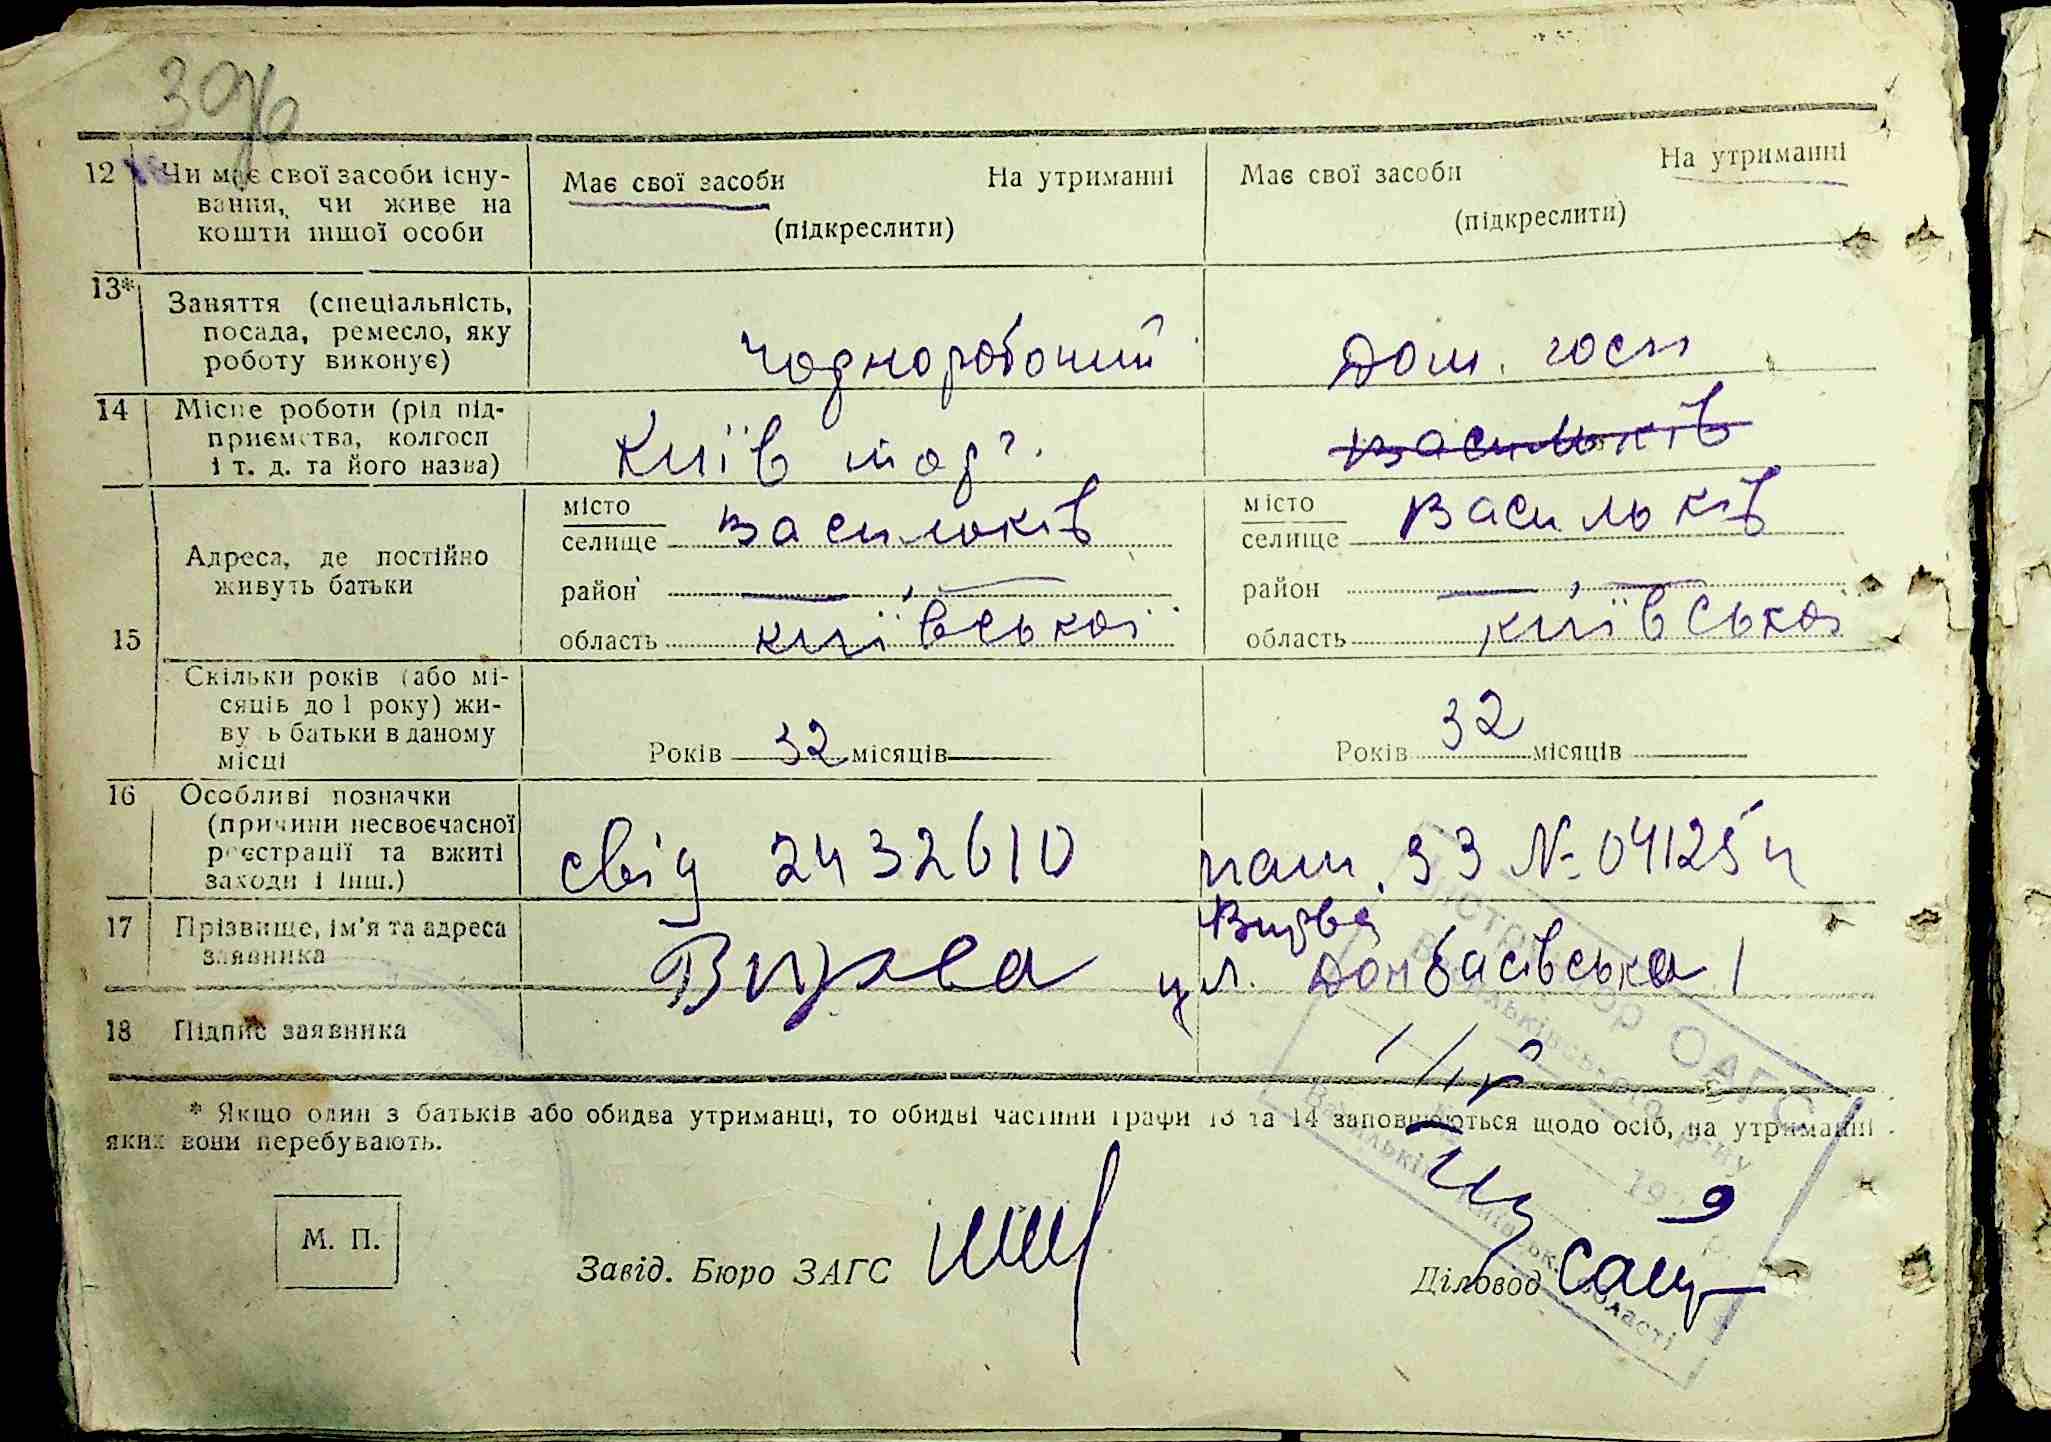 396
12 Чи має свої засоби існу-
вання, чи живе на
кошти іншої особи
Має свої засоби На утриманні
(підкреслити)
Має свої засоби На утриманні
(підкреслити)
13* Заняття (спеціальність,
посада, ремесло, яку
роботу виконує)
Чорноробочий
Дом. госп
14 Місце роботи (рід під-
приємства, колгосп
і т. д. та його назва)
Київ торг.
Васильків
15
Адреса, де постійно
живуть батьки
місто
селище Васильків
район
область київської
місто
селище Васильків
район
область київської
Скільки років (або мі-
сяців до 1 року) жи-
вуть батьки в даному
місці
Років 32 місяців
Років 32 місяців
16 Особливі позначки
(причини несвоєчасної
реєстрації та вжиті
заходи і інш.)
свід 2432610
пасп.
17 Прізвище, ім'я та адреса
заявника
ул. Донбасівська 1
18 Підпис заявника
* Якщо один з батьків або обидва утриманці, то обидві частини графи 13 та 14 заповнюються щодо осіб, на утриманні
яких вони перебувають.
М. П.
Завід. Бюро ЗАГС
Діловод